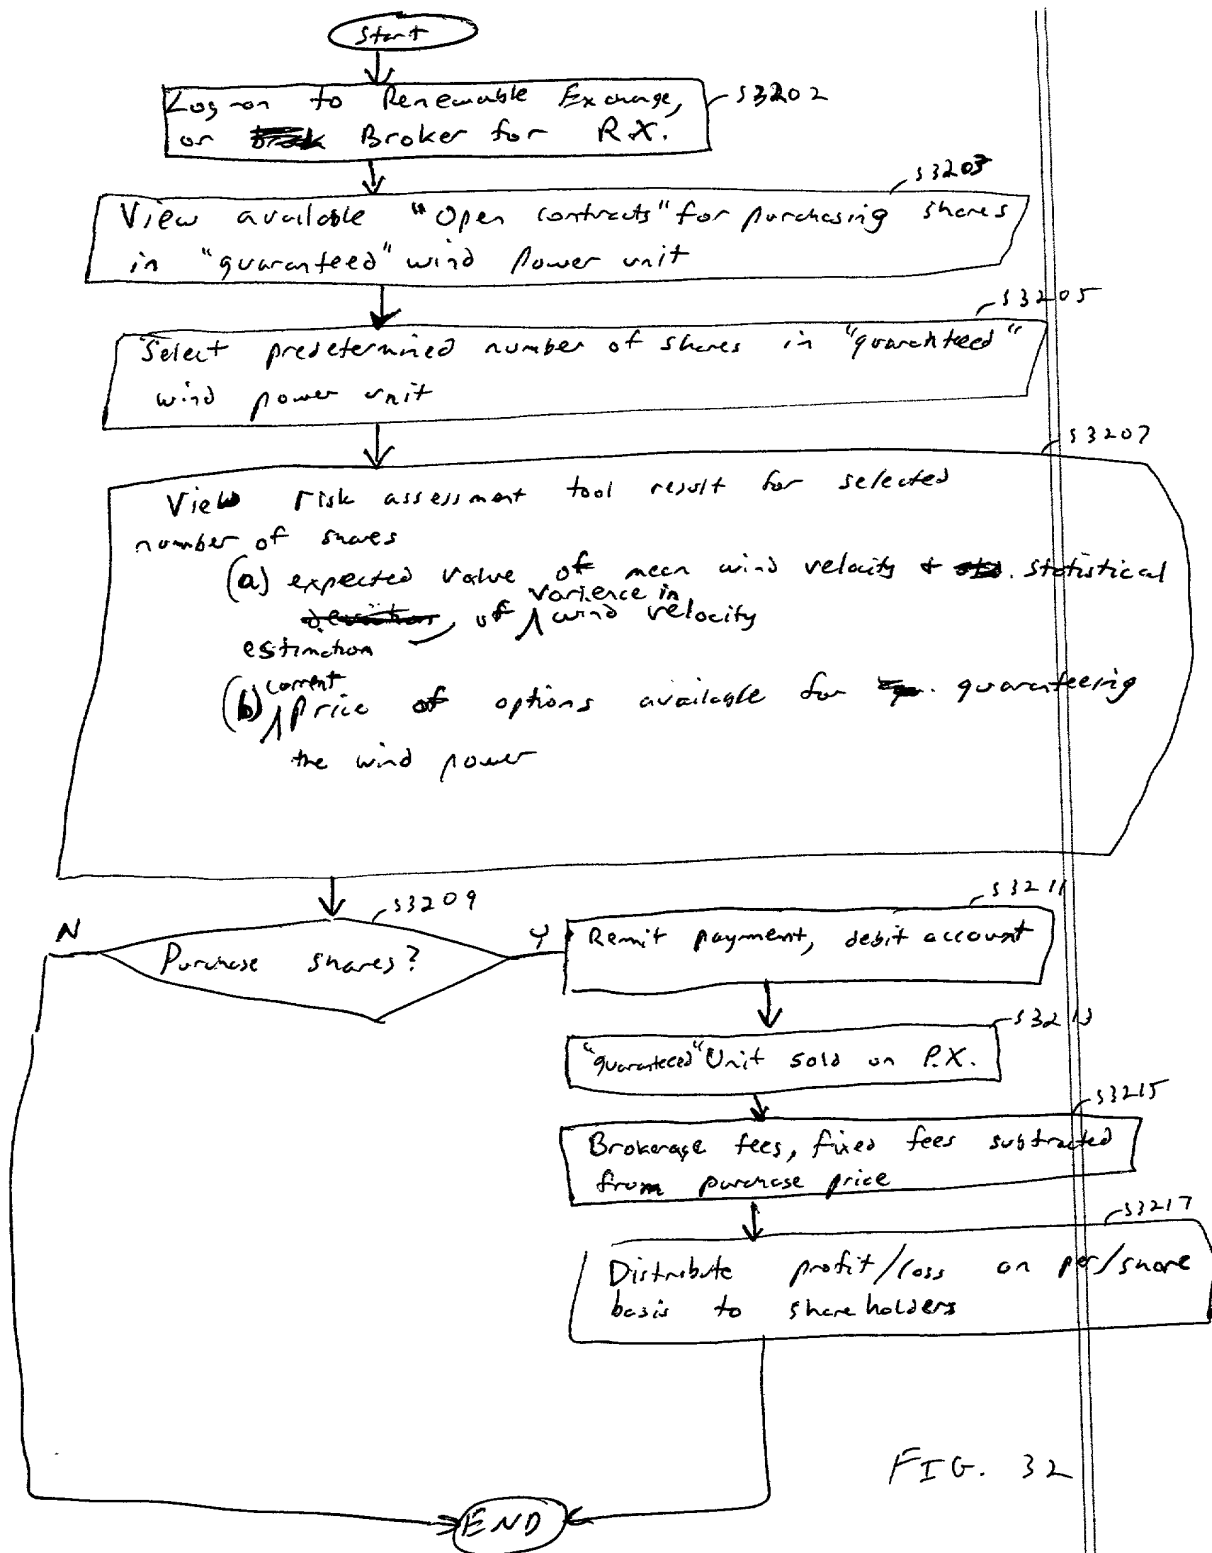 Start
Log-on to Renewable Exchange,
or Broker for R.X.
S3202
S3203
View available "Open contracts" for purchasing shares
in "guaranteed" wind power unit
S3205
Select predetermined number of shares in "guaranteed"
wind power unit
S3207
View risk assessment tool result for selected
number of shares
(a) expected value of mean wind velocity + statistical
varience in
of wind velocity
estimation
current
(b) price of options available for guaranteeing
the wind power
S3209
N
Purchase shares?
Y
S3211
Remit payment, debit account
S3213
"guaranteed" Unit sold on P.X.
S3215
Brokerage fees, fixed fees subtracted
from purchase price
S3217
Distribute profit/loss on per/share
basis to shareholders
FIG. 32
END